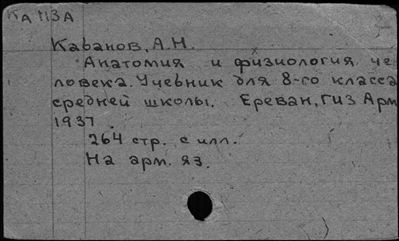 КА 113А
Кабанов, А.Н.
Анатомия и физиология че
ловека. Учебник для 8-го класса
средней школы. Ереван, ГИЗ Арм
1937.
264 стр. с илл.
На арм. яз.